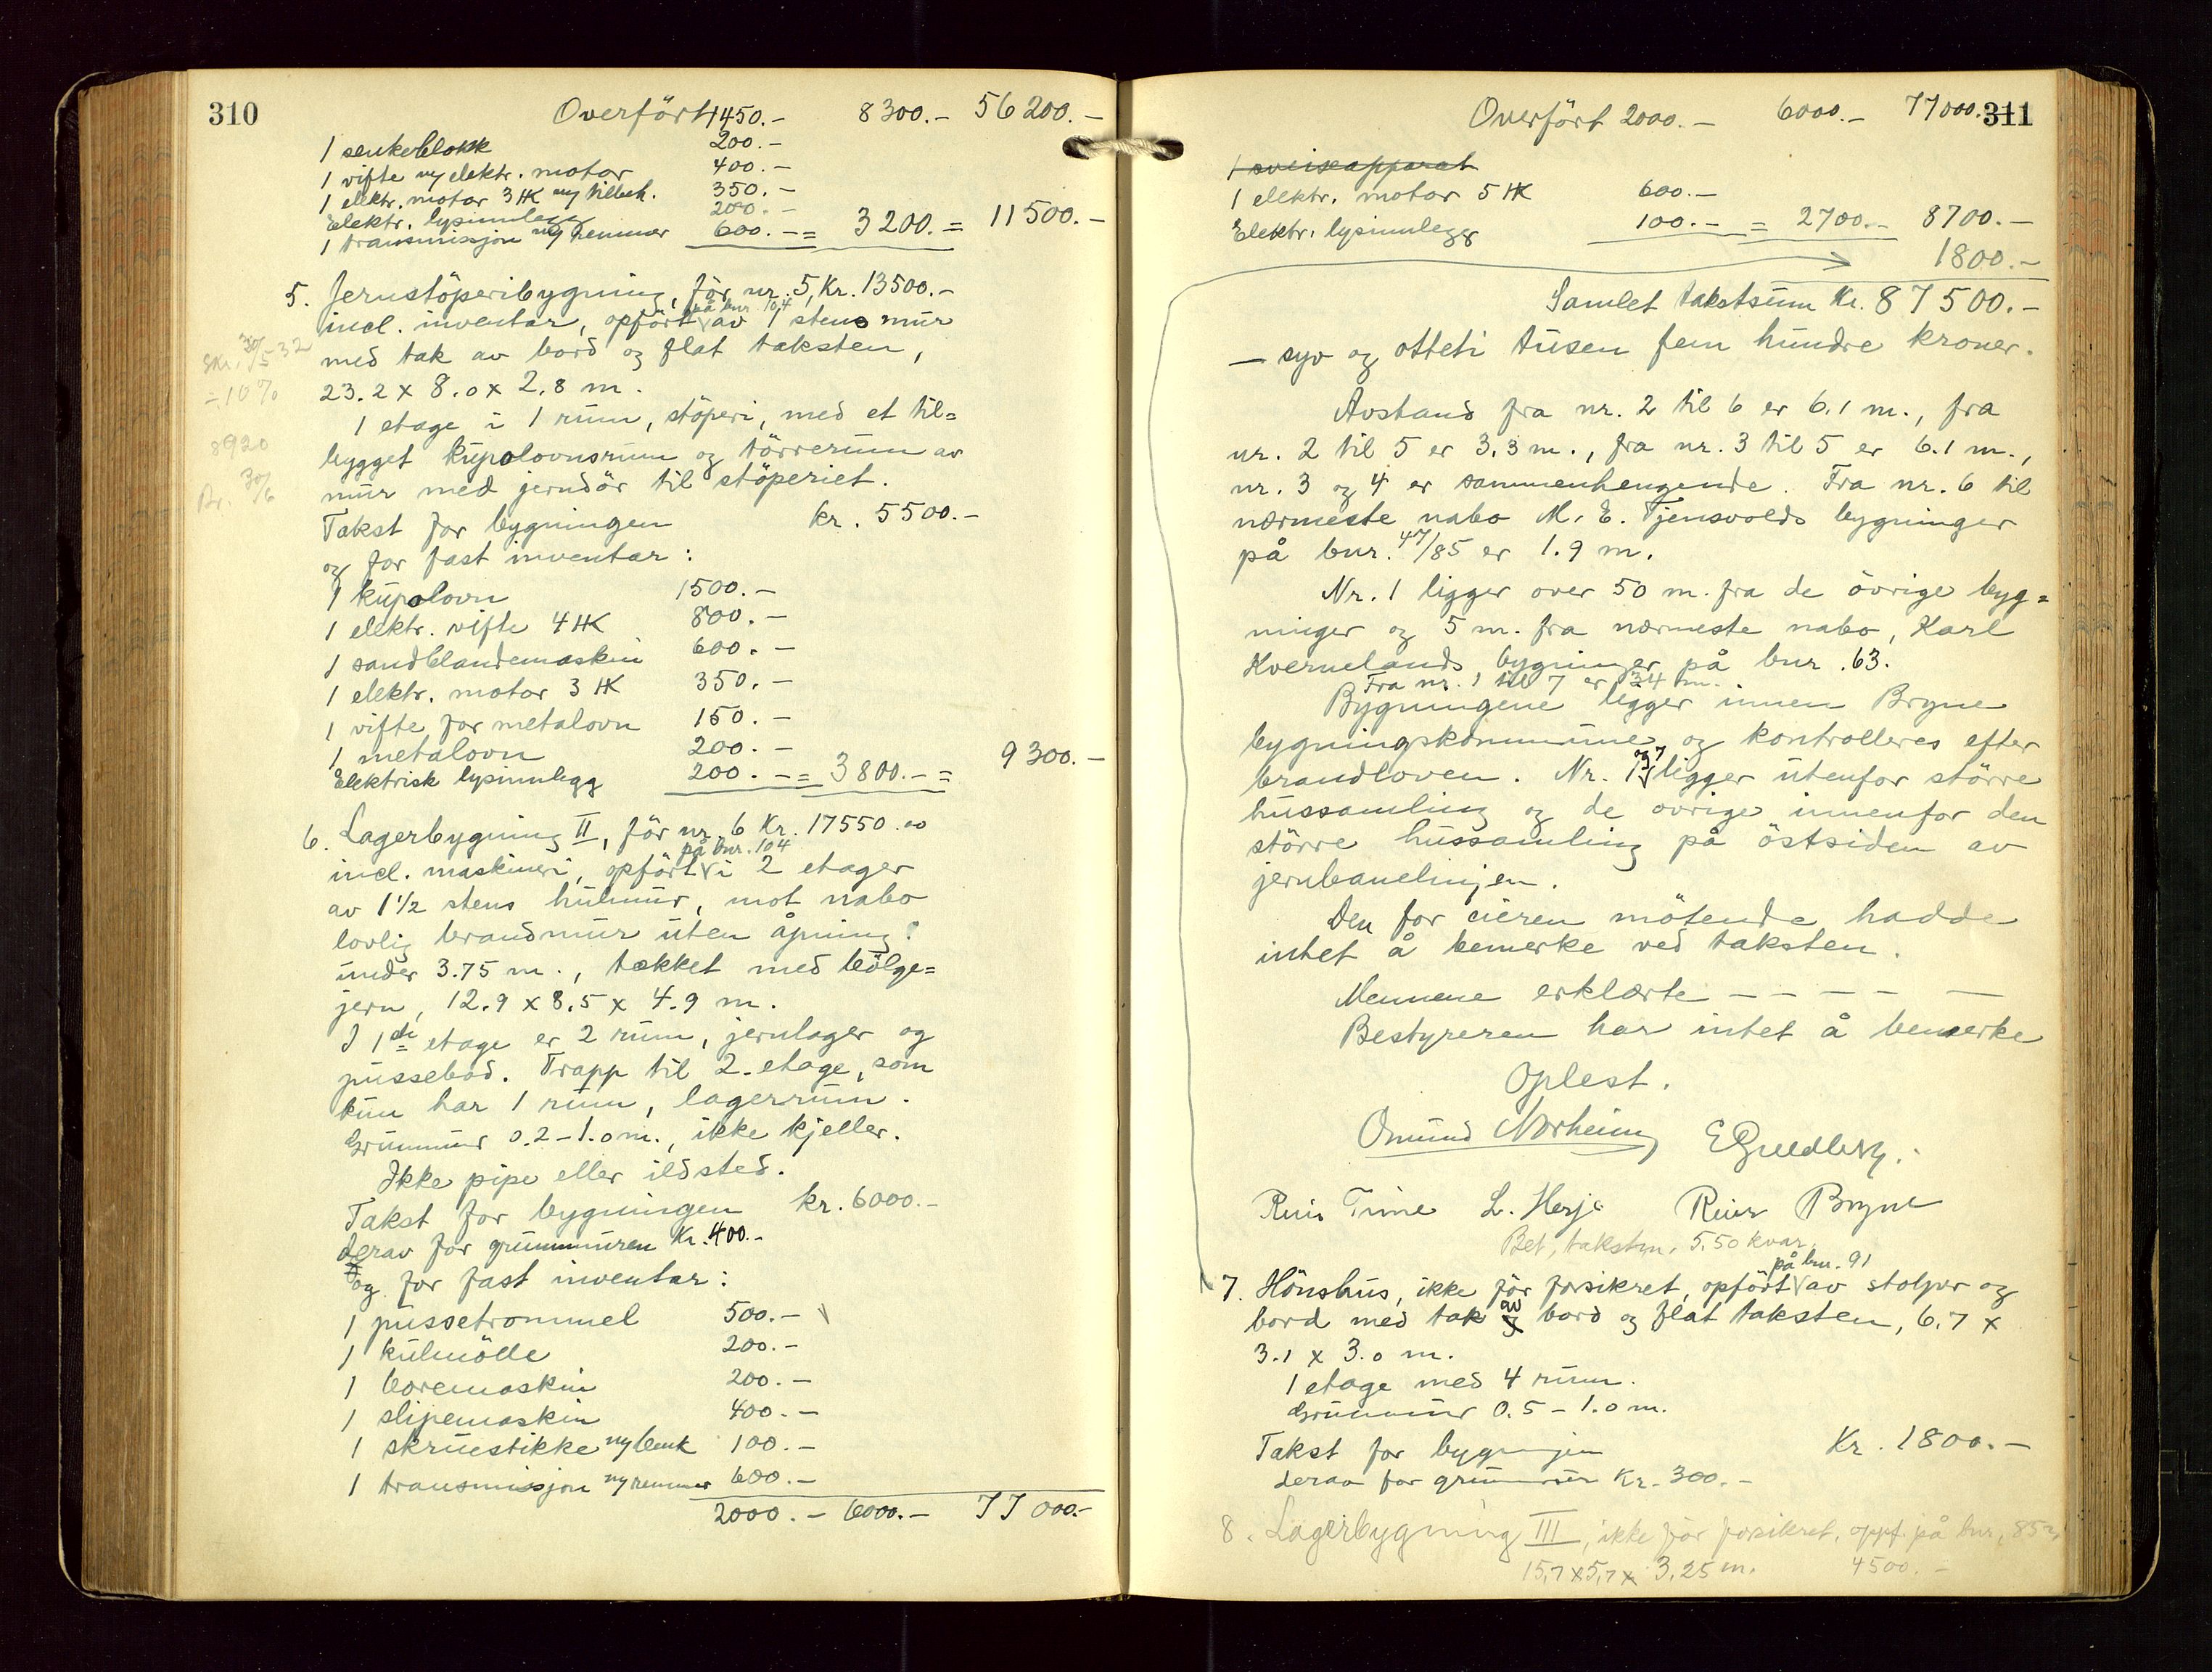 310
Overført 1450.- 8300.- 56200.-
1 senkeblokk 200.-
1 vifte m/ elektr. motor 400.-
1 elektr. motor 3 HK m/ tilbeh. 350.-
Elektr. lysinnlegg 200.-
1 transmissjon m/ remmer 600.- = 3200.- = 11500.-
5. Jernstöperibygning, för nr. 5, Kr. 13500.-
på bnr. 104
incl. inventar, opfört av 1 stens mur
med tak av bord og flat taksten,
23.2 x 8.0 x 2.8 m.
1 etage i 1 rum, stöperi, med et til=
bygget kupolovnsrum og törrerum av
mur med jerndör til stöperiet.
Takst for bygningen kr. 5500.-
og for fast inventar:
1 kupolovn 1500.-
1 elektr. vifte 4 HK 800.-
1 sandblandemaskin 600.-
1 elektr. motor 3 HK 350.-
1 vifte for metalovn 150.-
1 metalovn 200.-
Elektrisk lysinnlegg 200.- = 3800.- = 9300.-
Skr. 30/5 32
÷ 10%
8920
Pr. 30/6
6. Lagerbygning II, för nr. 6 Kr. 17550.00
på bnr. 104
incl. maskineri, opfört i 2 etager
av 1½ stens hulmur, mot nabo
lovlig brandmur uten åpning
under 3.75 m., tækket med bölge=
jern, 12.9 x 8.5 x 4.9 m.
I 1ste etage er 2 rum, jernlager og
pussebod. Trapp til 2. etage, som
kun har 1 rum, lagerrum.
Grunmur 0.2 - 1.0 m., ikke kjeller.
Ikke pipe eller ildsted.
Takst for bygningen kr. 6000.-
derav for grunnmuren Kr. 400.-
og for fast inventar:
1 pussetrommel 500.-
1 kulmölle 200.-
1 boremaskin 200.-
1 slipemaskin 400.-
1 skruestikke m/ benk 100.-
1 transmissjon m/ remmer 600.-
2000.- 6000.- 77000.-
311
Overfört 2000.- 6000.- 77000.-
1 sveiseapparat
1 elektr. motor 5 HK 600.-
Elektr. lysinnlegg 100.- = 2700.- 8700.-
1800.-
Samlet takstsum Kr. 87500.-
- syv og otteti tusen fem hundre kroner.
Avstand fra nr. 2 til 6 er 6.1 m., fra
nr. 2 til 5 er 3.3 m., fra nr. 3 til 5 er 6.1 m.,
nr. 3 og 4 er sammenhengende. Fra nr. 6 til
nærmeste nabo M. E. Tjensvolds bygninger
på bnr. 47/85 er 1.9 m.
Nr. 1 ligger over 50 m. fra de övrige byg=
ninger og 5 m. fra nærmeste nabo, Karl
Kvernelands, bygninger på bnr. 63.
Fra nr. 1 til 7 er 34 m.
Bygningene ligger innen Bryne
bygningskommune og kontrolleres efter
brandloven. Nr. 1 og 7 ligger utenfor större
hussamling og de övrige innenfor den
större hussamling på östsiden av
jernbanelinjen.
Den for eieren mötende hadde
intet å bemerke ved taksten.
Mennene erklærte - - - - -
Bestyreren har intet å bemerke
Oplest.
Omund Norheim
Reier Time L. Herje Reier Bryne
Bet, taksten. 5.50 kvar.
på bnr. 91
7. Hönshus, ikke för forsikret, opfört av stolper og
bord med tak av bord og flat taksten, 6.7 x
3.1 x 3.0 m.
1 etage med 4 rum.
Grunnmur 0.5 - 1.0 m.
Takst for bygningen Kr. 1800.-
derav for grunnmur Kr. 300.-
8. Lagerbygning III, ikke för forsikret, oppf. på bnr. 85
15,7 x 5,7 x 3.25 m. 4500.-